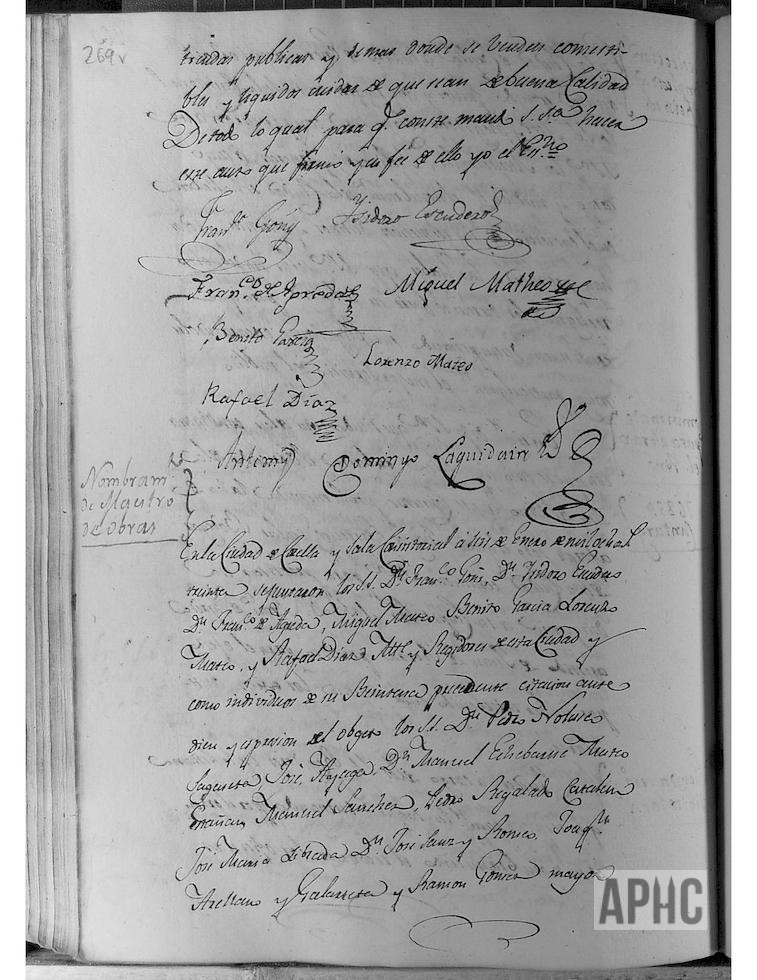 269v
tiendas publicas y demas donde se venden comesti-
bles y liquidos cuidar de que sean de buena Calidad
De todo lo qual para q.e conste mandó S. S.a hacer
este auto que firmó y en fee de ello yo el Ess.no
Fran.co Goñi Ysidoro Escudero
Fran.co de Agreda Miguel Matheo
Benito Garcia
Lorenzo Mateo
Rafael Diaz
Antemi Domingo Laquidain
Nombram.to
de Maestro
de obras
En la Ciudad de Cascante y Sala Consistorial á seis de Enero de mil ochoc.s
treinta se juntaron los S.S. D.n Fran.co Goñi, D.n Ysidoro Escudero
D.n Fran.co de Agreda, Miguel Mateo Benito Garcia Lorenzo
Mateo, y Rafael Diaz Alc.e y Regidores de esta Ciudad y
como individuos de su Beintena precedente citacion ante
diem y espresion del objeto los S.S. D.n Pedro Nolasco
José D.n Manuel Echebarne Mateo
Manuel Sanchez, Pedro Regalado Catalan
José Maria D.n José Sanz y Romeo, Joaq.n
Arellano y Galarreta y Ramon Gomez mayor
APHC